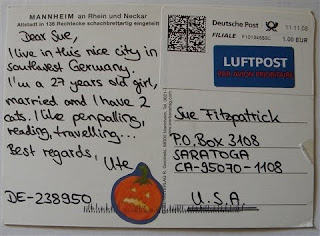 MANNHEIM an Rhein und Neckar
Altstadt in 136 Rechtecke schachbrettartig eingeteilt
Dear Sue,
I live in this nice city in
southwest Germany.
I'm a 27 years old girl,
married and I have 2
cats. I like penpalling,
reading, travelling...
Best regards,
Ute
DE-238950
Deutsche Post
11.11.08
FILIALE
1,00 EUR
LUFTPOST
PAR AVION PRIORITAIRE
Sue Fitzpatrick
P.O. Box 3108
SARATOGA
CA-95070-1108
U.S.A.